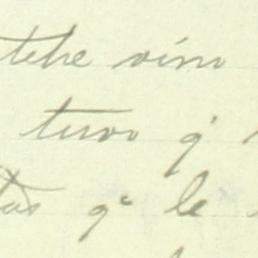 tehe vino
tuvo q'
tas qe le